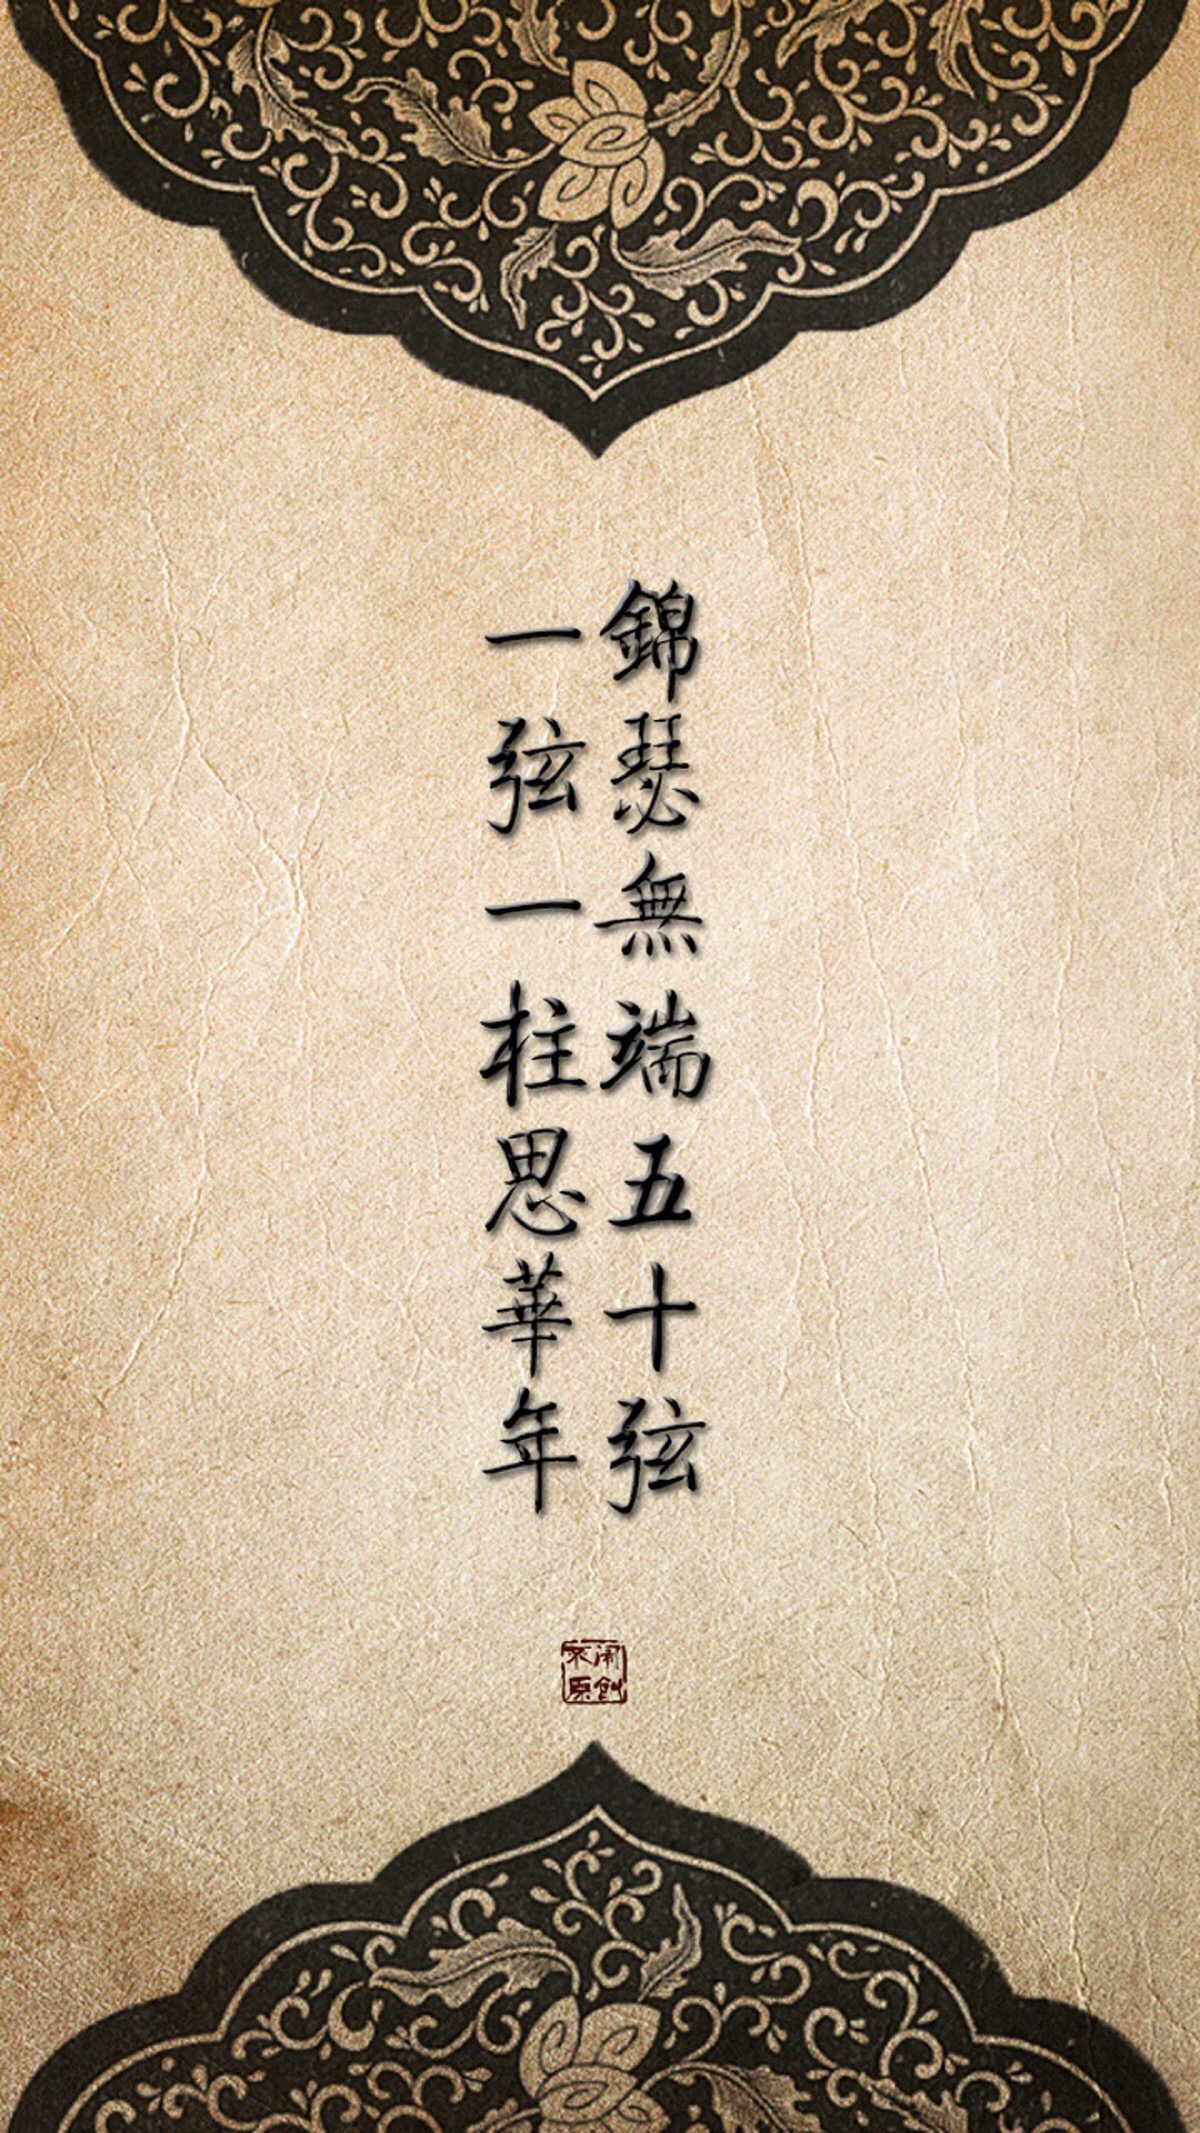 錦瑟無端五十弦
一弦一柱思華年
不闹
原創